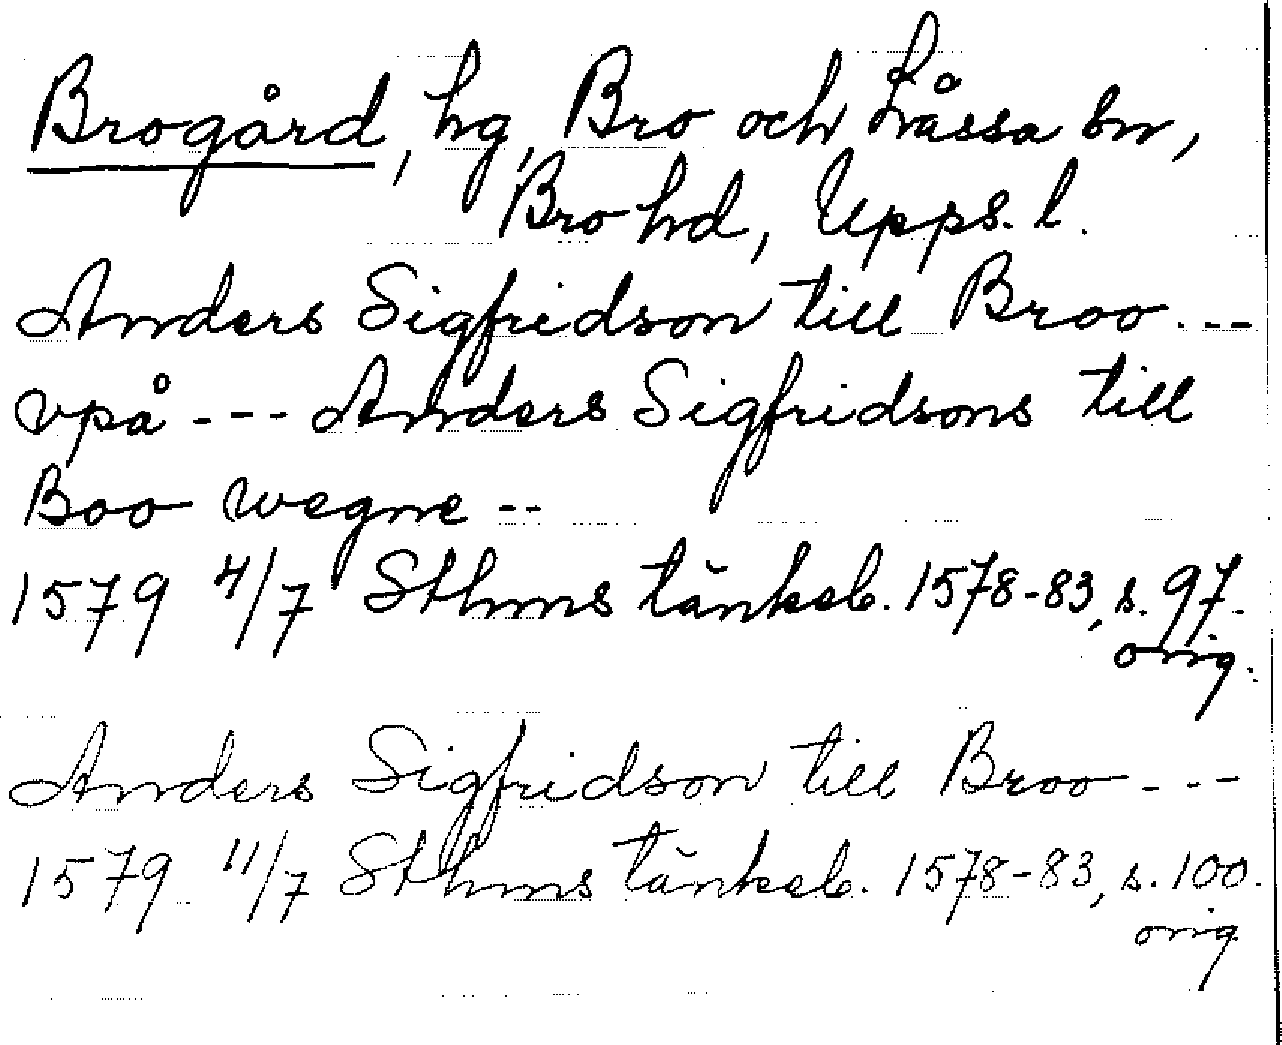 Brogård, hg, Bro och Låssa sn,
Bro hd, Upps. l.
Anders Sigfridson till Broo. ---
vpå --- Anders Sigfridsons till
Boo wegne --
1579 4/7 Sthms tänkeb. 1578-83, s. 97.
orig.
Anders Sigfridson till Broo ---
1579 11/7 Sthms tänkeb. 1578-83, s. 100.
orig